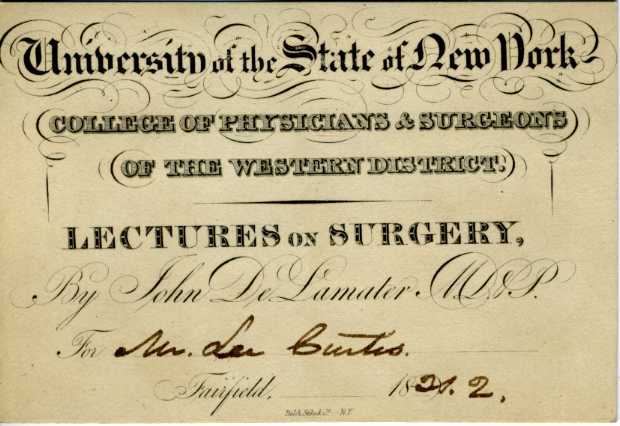 University of the State of New York
COLLEGE OF PHYSICIANS & SURGEONS
OF THE WESTERN DISTRICT.
LECTURES ON SURGERY,
By John De Lamater M.D. & P.
For Mr. Lee Curtis.
Fairfield, 18 21.2.
N.Y.